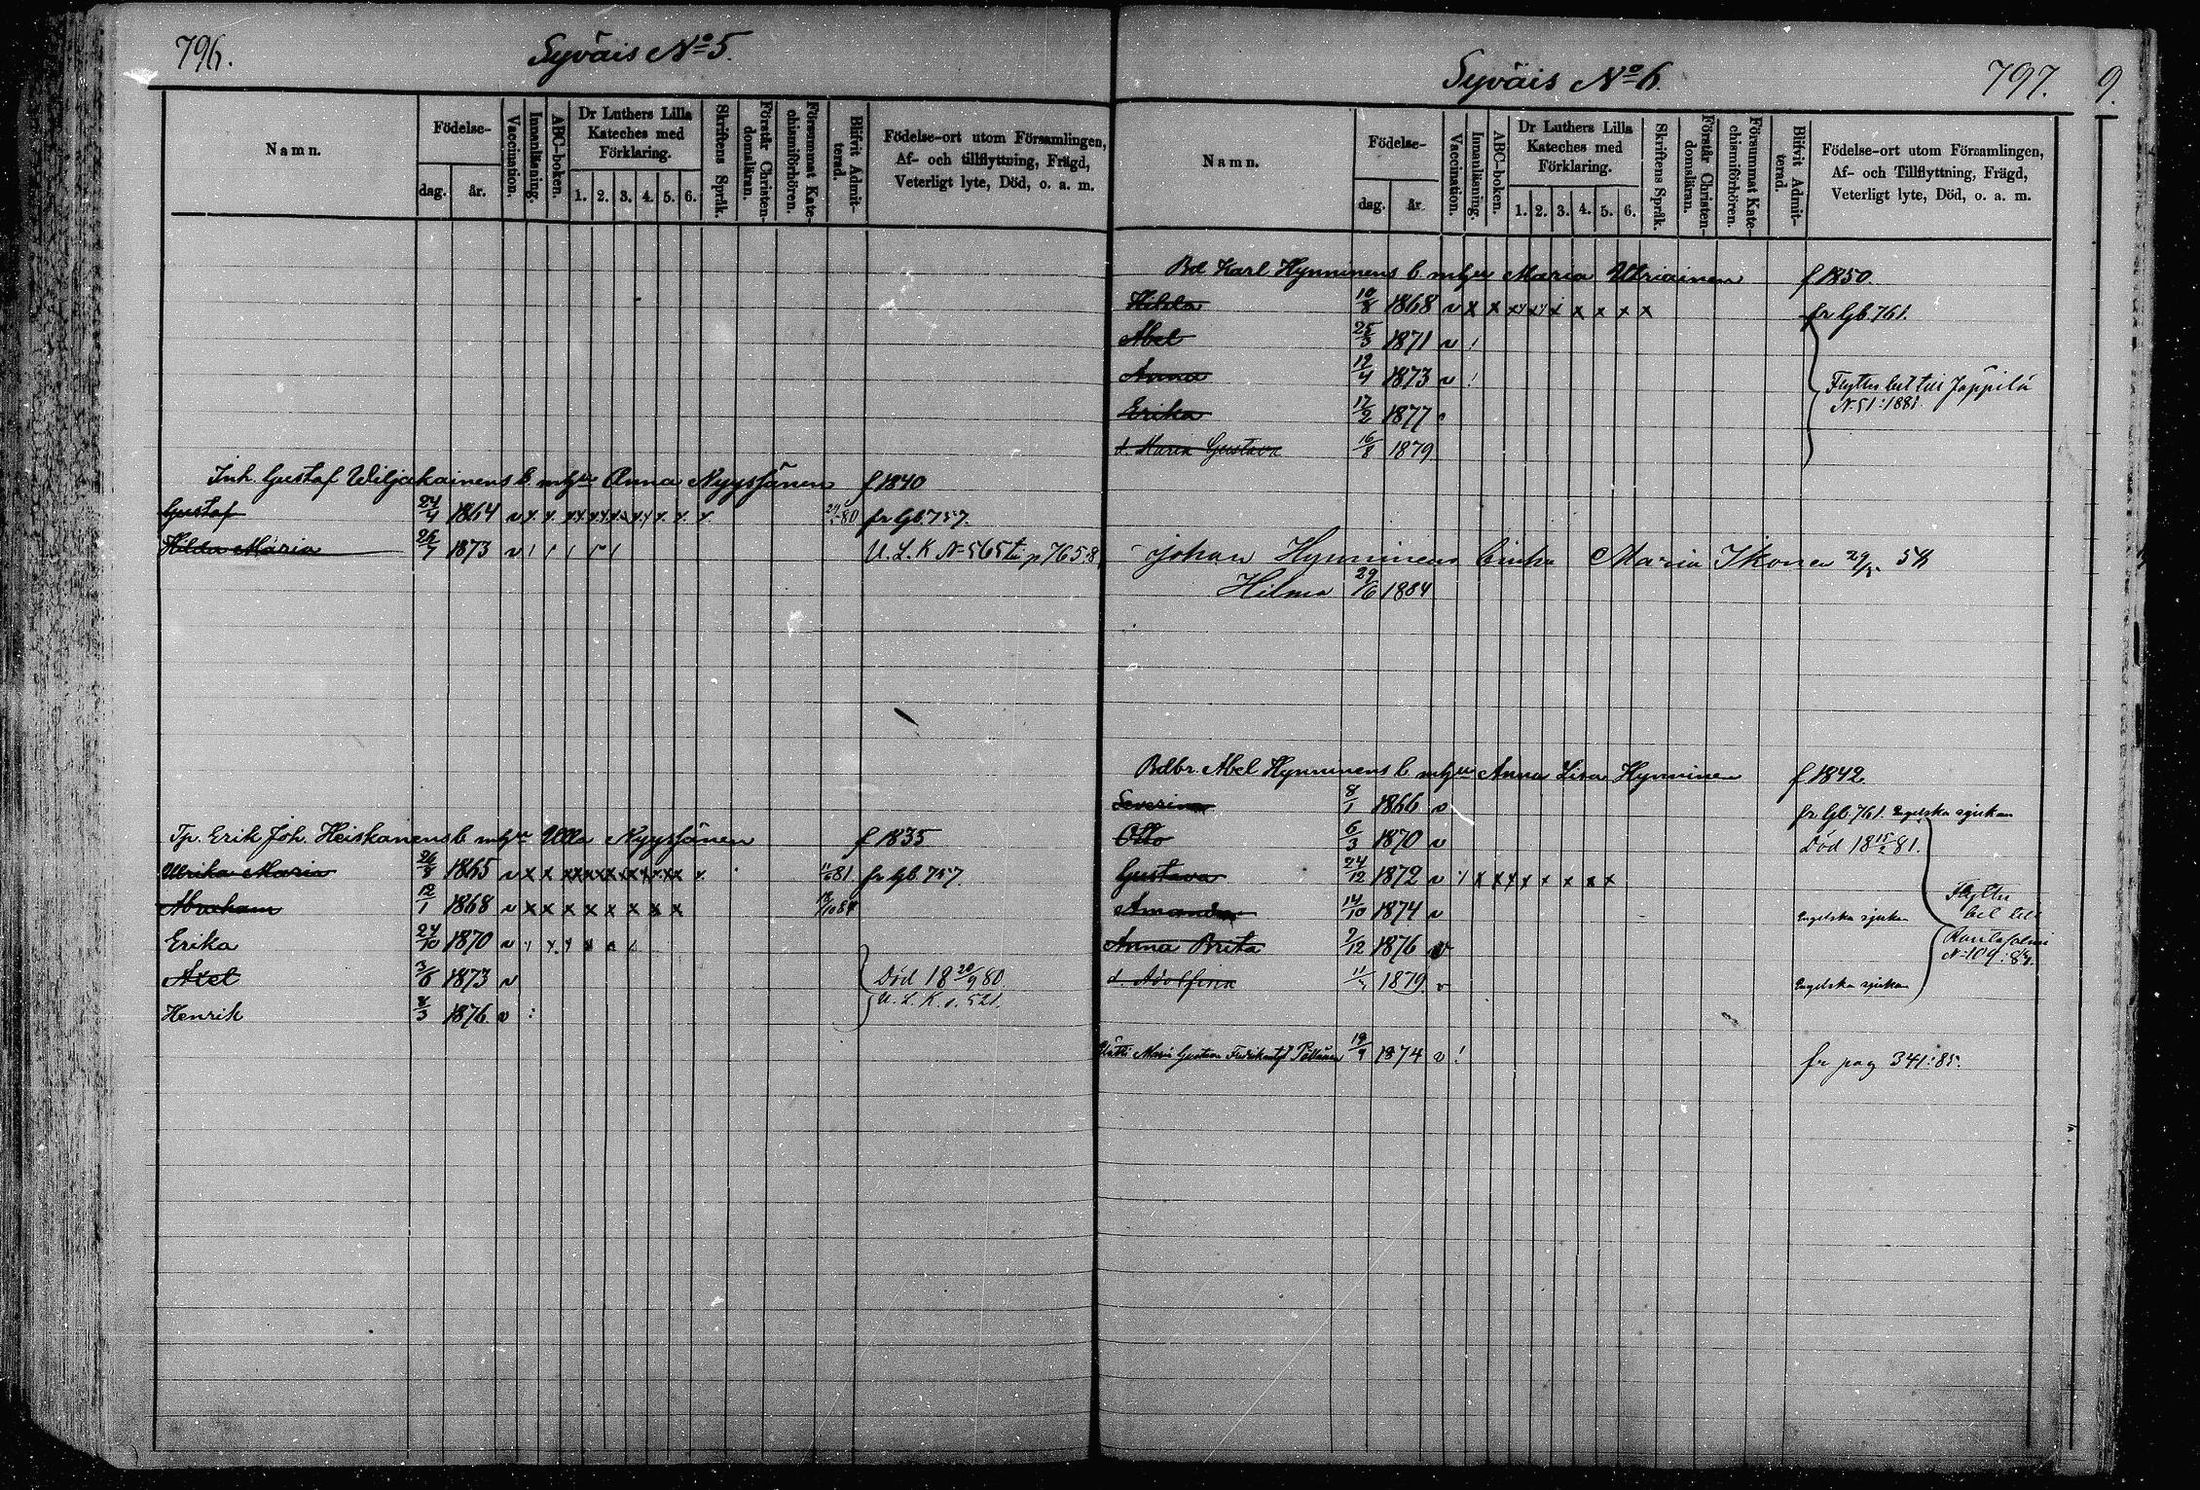 796.
Syväis No 5.
Namn.
Födelse-
dag. år.
Vaccination.
Innanläsning.
ABC-boken.
Dr Luthers Lilla Kateches med Förklaring.
1. 2. 3. 4. 5. 6.
Skriftens Språk.
Förstår Christendomsläran.
Försummat Katechismiförhören.
Blifvit Admitterad.
Födelse-ort utom Församlingen,
Af- och tillflyttning, Frägd,
Veterligt lyte, Död, o. a. m.
Inh. Gustaf Wiljakainens b. m hu Anna Nyyssönen f 1840
Gustaf 24/4 1864 v fr Gb. 757.
Hilda Maria 26/7 1873 v U. L. K No 565
Tp. Erik Joh. Heiskanens b m hu Ulla Nyyssönen f 1835
Ulrika Maria 26/8 1865 v x x fr Gb 757.
Abraham 12/1 1868 v x x x x x x x x
Erika 24/10 1870 v
Axel 1873 v Död 18 20/9 80
Henrik 1876 v U. L. K. s. 521.
Syväis No 6.
797.
9.
Namn.
Födelse-
dag. år
Vaccination.
Innanläsning.
ABC-boken.
Dr Luthers Lilla Kateches med Förklaring.
1. 2. 3. 4. 5. 6.
Skriftens Språk.
Förstår Christendomsläran.
Försummat Katechismiförhören.
Blifvit Admitterad.
Födelse-ort utom Församlingen,
Af- och Tillflyttning, Frägd,
Veterligt lyte, Död, o. a. m.
Bd Karl Hynninens b. m hu Maria Utriainen f 1850.
Hilda 10/8 1868 v x x fr Gb. 761.
Abel 25/3 1871 v
Anna 12/4 1873 v Flyttn. bet till Jäppilä
Erika 17/2 1877 N. 51: 1881.
d. Maria Gustava 16/8 1879
Johan Hynninens Maria Ikonen 54
Hilma 29/6 1884
Bdbr. Abel Hynninens b. m hu Anna Lisa Hynninen f 1842
Severina 8/1 1866 v fr Gb. 761. Engelska sjukan
Otto 6/3 1870 v Död 18 15/2 81.
Gustava 24/12 1872 v
Amanda 14/10 1874 v Engelska sjukan
Flyttn. bet till
Anna Brita 9/12 1876 v Rantasalmi
No 109: 84.
d. Adolfina 1879 v Engelska sjukan
Maria Gustava Pöllänen 1874 v fr pag 341: 85.